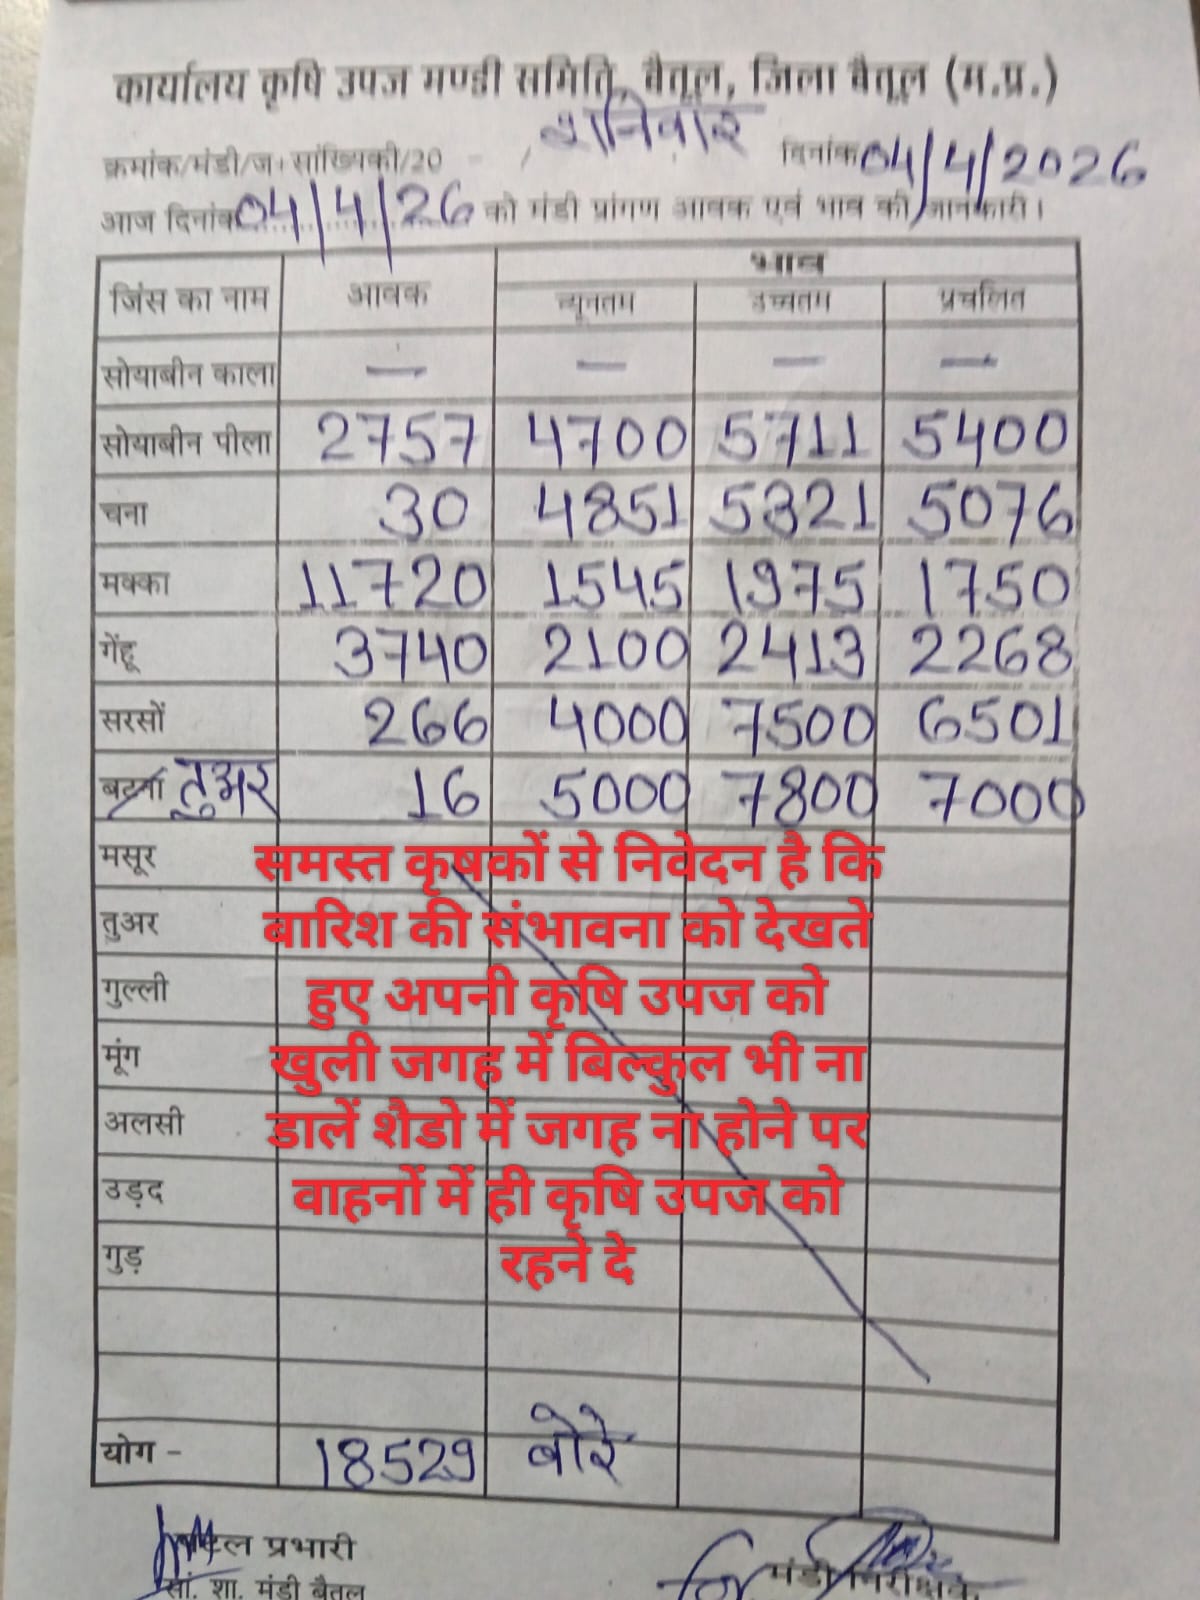 कार्यालय कृषि उपज मण्डी समिति, बैतूल, जिला बैतूल (म.प्र.)
शनिवार
क्रमांक/मंडी/ज.सांख्यिकी/20 दिनांक 04/4/2026
आज दिनांक 04/4/26 को मंडी प्रांगण आवक एवं भाव की जानकारी।
भाव
जिंस का नाम आवक न्यूनतम उच्चतम प्रचलित
सोयाबीन काला — — — —
सोयाबीन पीला 2757 4700 5711 5400
चना 30 4851 5321 5076
मक्का 11720 1545 1975 1750
गेंहू 3740 2100 2413 2268
सरसों 266 4000 7500 6501
बटना तुअर 16 5000 7800 7000
मसूर
तुअर
गुल्ली
मूंग
अलसी
उड़द
गुड़
समस्त कृषकों से निवेदन है कि
बारिश की संभावना को देखते
हुए अपनी कृषि उपज को
खुली जगह में बिल्कुल भी ना
डालें शैडो में जगह ना होने पर
वाहनों में ही कृषि उपज को
रहने दे
योग - 18529 बोरे
प्रभारी मंडी निरीक्षक
सां. शा. मंडी बैतूल